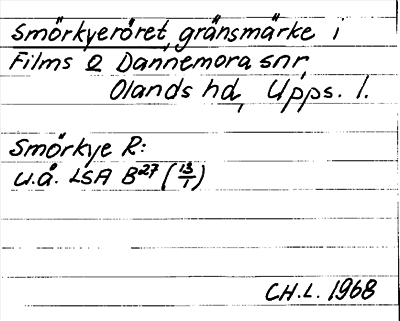 Smörkyeröret, gränsmärke i
Films o Dannemora snr,
Olands hd, Upps. l.
Smörkye R:
u.å. LSA B27 (13/1)
CH.L. 1968